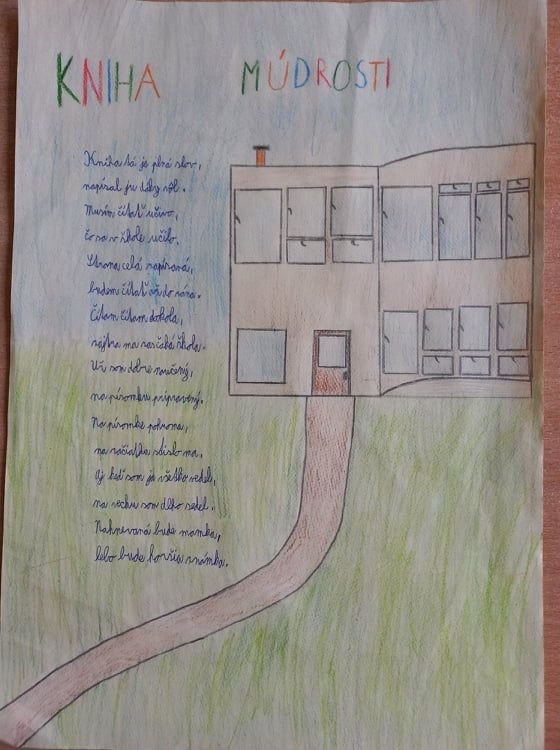 KNIHA MÚDROSTI
Kniha tá je plná slov,
napísal ju doby
Musím čítať učivo,
čo sa v škole učilo.
Strana celá napísaná,
budem čítať až do rána.
Čítam čítam dokola,
zajtra ma zas čaká škola.
Už som dobre naučený,
na písomku pripravený.
Na písomke pohroma,
na začiatku ma.
Aj keď som ja všetko vedel,
na vechu som dlho sedel.
Nahnevaná bude mamka,
lebo bude horšia známka.